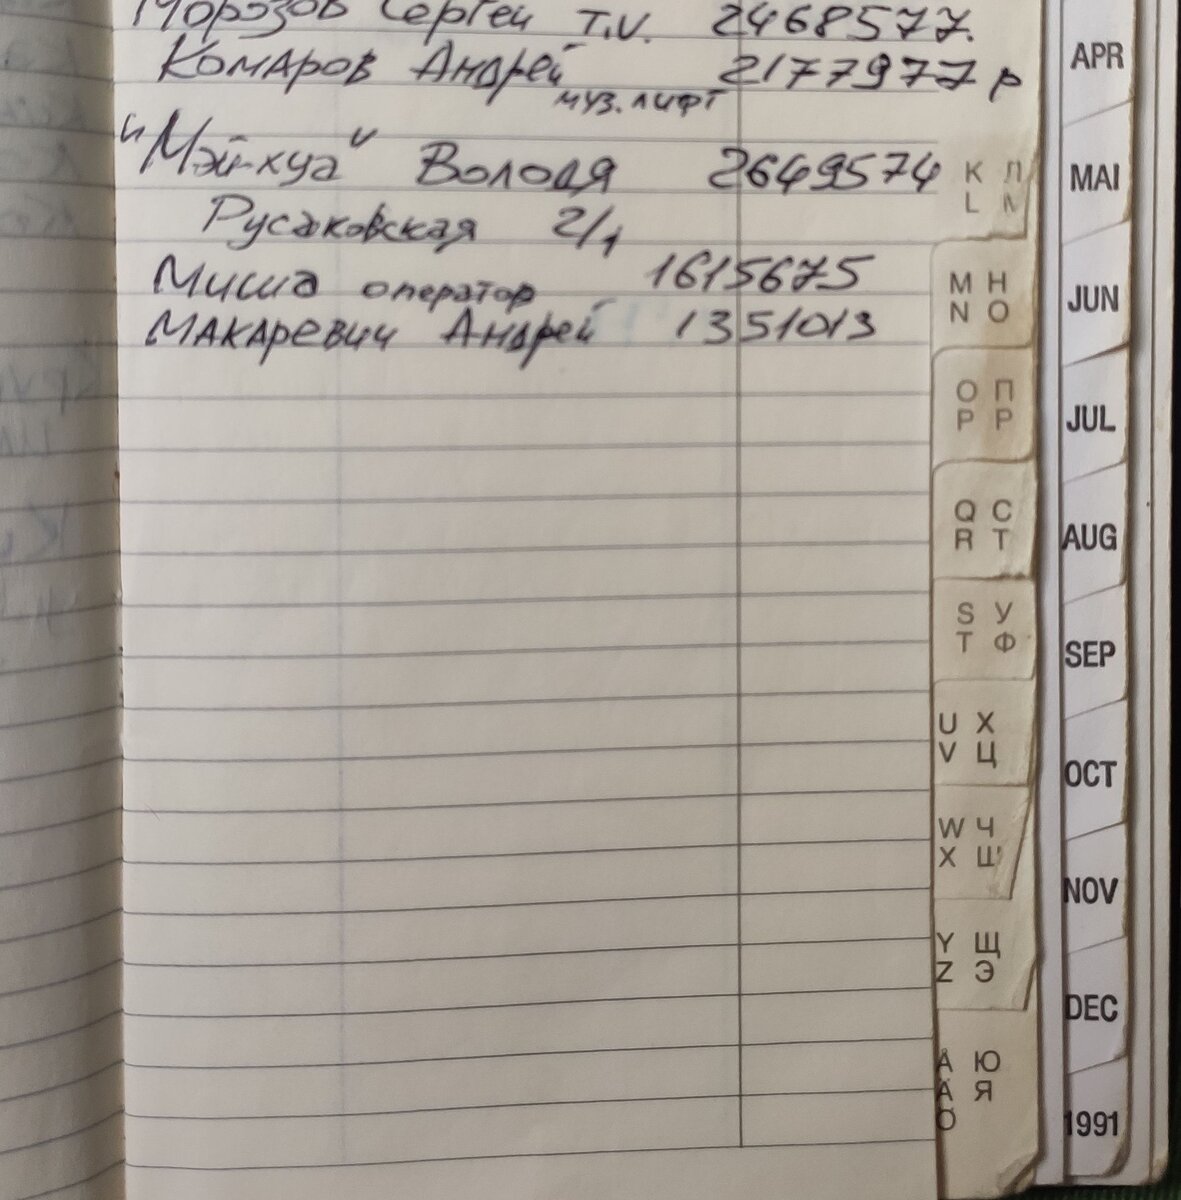 Морозов Сергей T.V. 2468577.
Комаров Андрей 2177977 р
муз. лифт
"Мэй-хуа" Володя 2649574
Русаковская 2/1
Миша оператор 1615675
Макаревич Андрей 1351013
K Л
L М
M Н
N О
O П
P Р
Q С
R Т
S У
T Ф
U Х
V Ц
W Ч
X Ш
Y Щ
Z Э
Å Ю
Ä Я
Ö
APR
MAI
JUN
JUL
AUG
SEP
OCT
NOV
DEC
1991